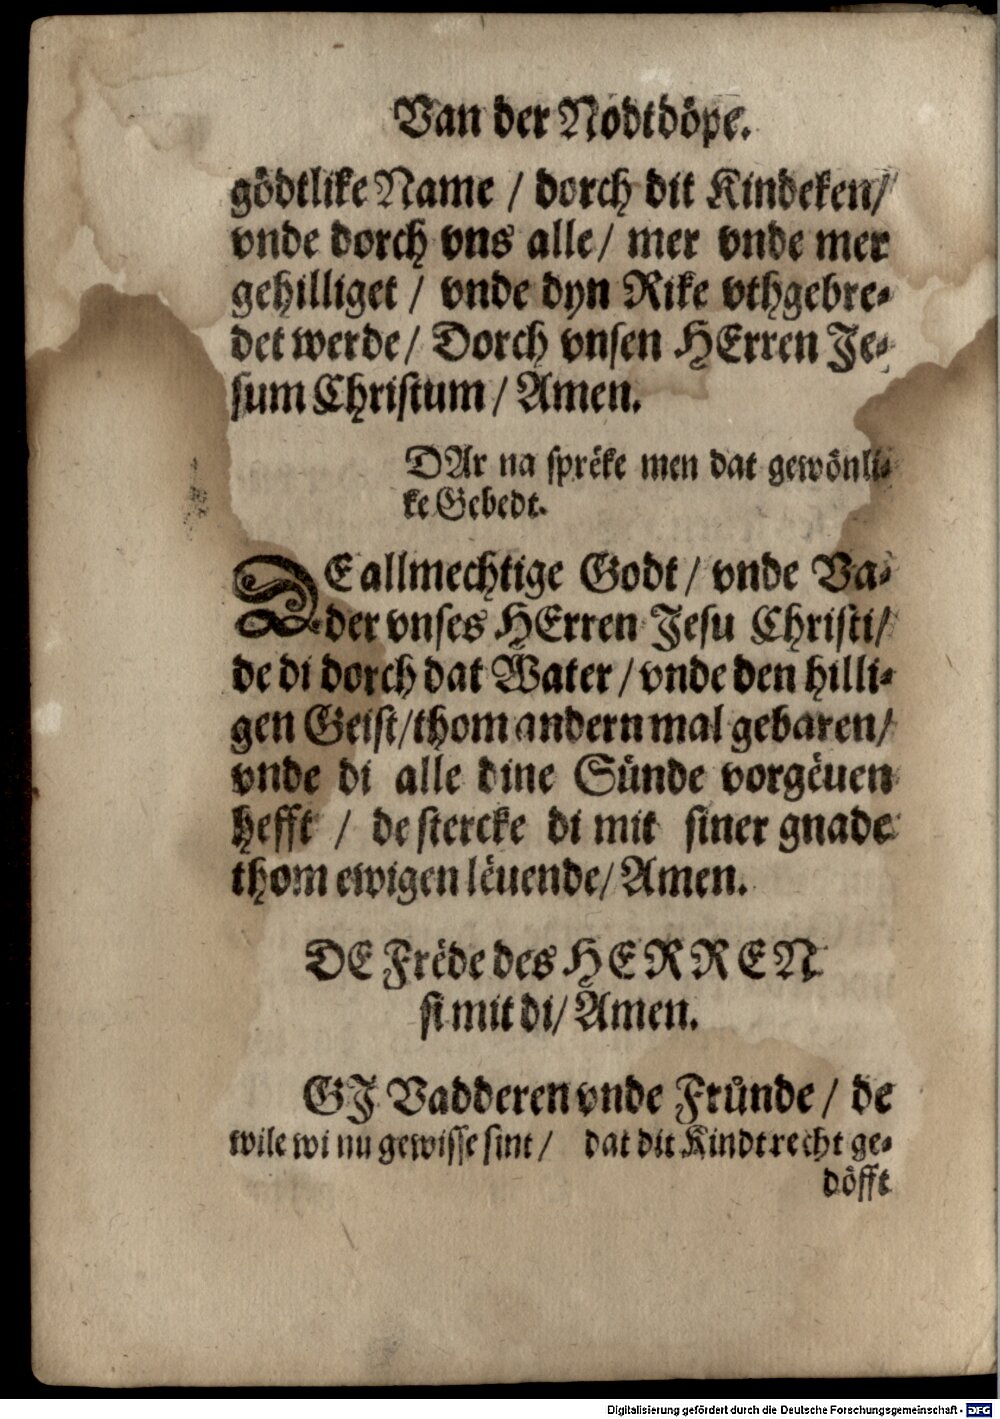 Van der Nodtdöpe.
gödtlike Name / dorch dit Kindeken/
vnde dorch vns alle/ mer vnde mer
gehilliget / vnde dyn Rike vthgebre-
det werde/ Dorch vnsen HErren Je-
sum Christum/ Amen.
DAr na spréke men dat gewönli-
ke Gebedt.
DE allmechtige Godt/ vnde Va-
der vnses HErren Jesu Christi/
de di dorch dat Water/ vnde den hilli-
gen Geist/thom andern mal gebaren/
vnde di alle dine Sünde vorgëuen
hefft / de stercke di mit siner gnade
thom ewigen lëuende/ Amen.
DE Frëde des HERREN
si mit di/ Amen.
GJ Vadderen vnde Fründe/ de
wile wi nu gewisse sint/ dat dit Kindt recht ge-
döfft
Digitalisierung gefördert durch die Deutsche Forschungsgemeinschaft - DFG